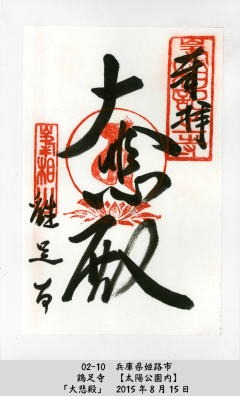 奉拝
大悲殿
鶏足寺
02-10 兵庫県姫路市
鶏足寺 【太陽公園内】
「大悲殿」 2015年8月15日